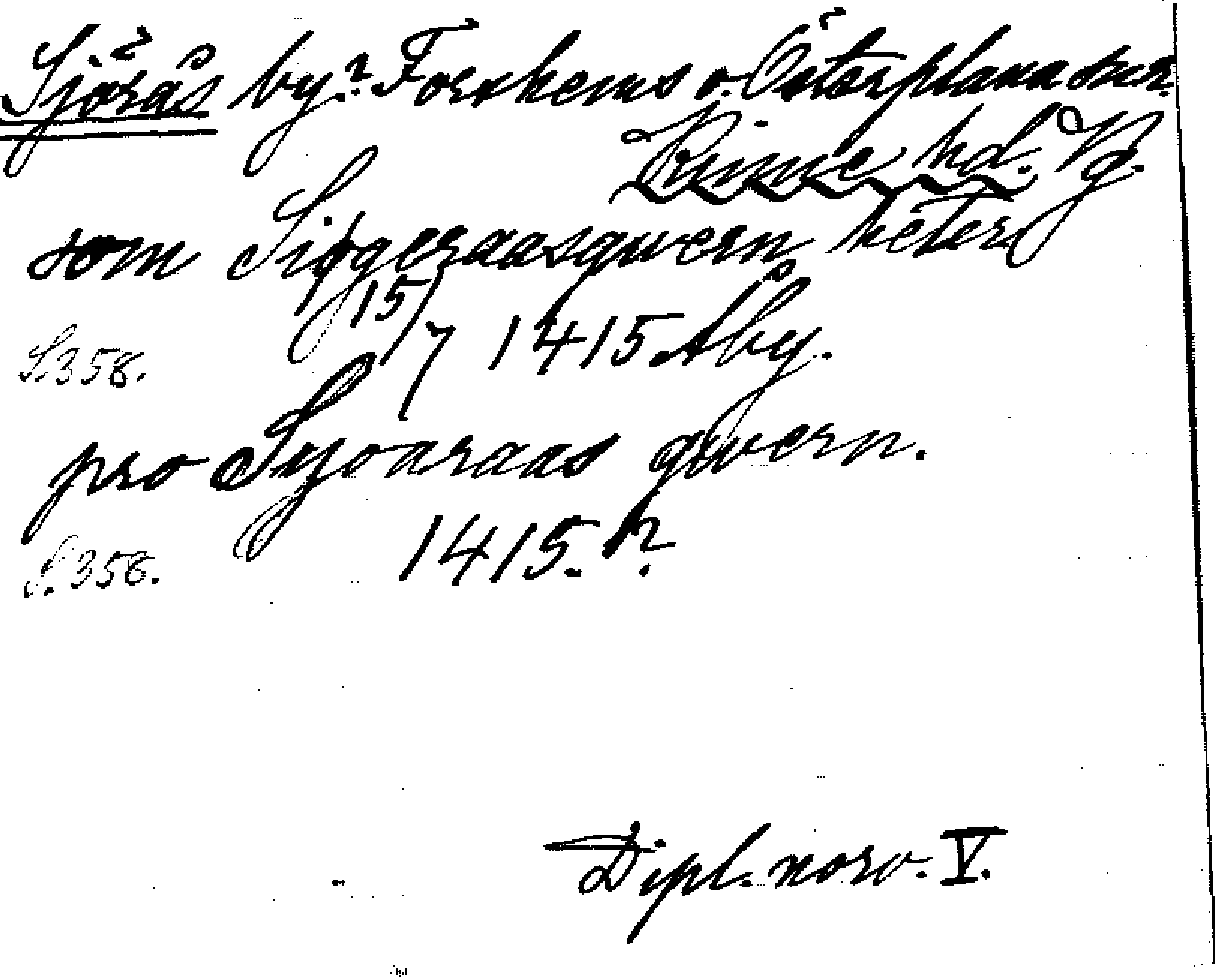 Sjörås by? Forshems o. Österplana snr.
Kinne hd. Vg.
som Siggeraasquern heter
S. 358. 15/7 1415 Åby.
pro Syoaraas qwern.
S. 358. 1415. ?
Dipl. norv. V.